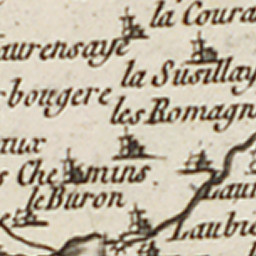 la Coura
aurensaye
la Susillay
rbougere
les Romagn
aux
s Che mins
le Buron
e
Lau
Laubie